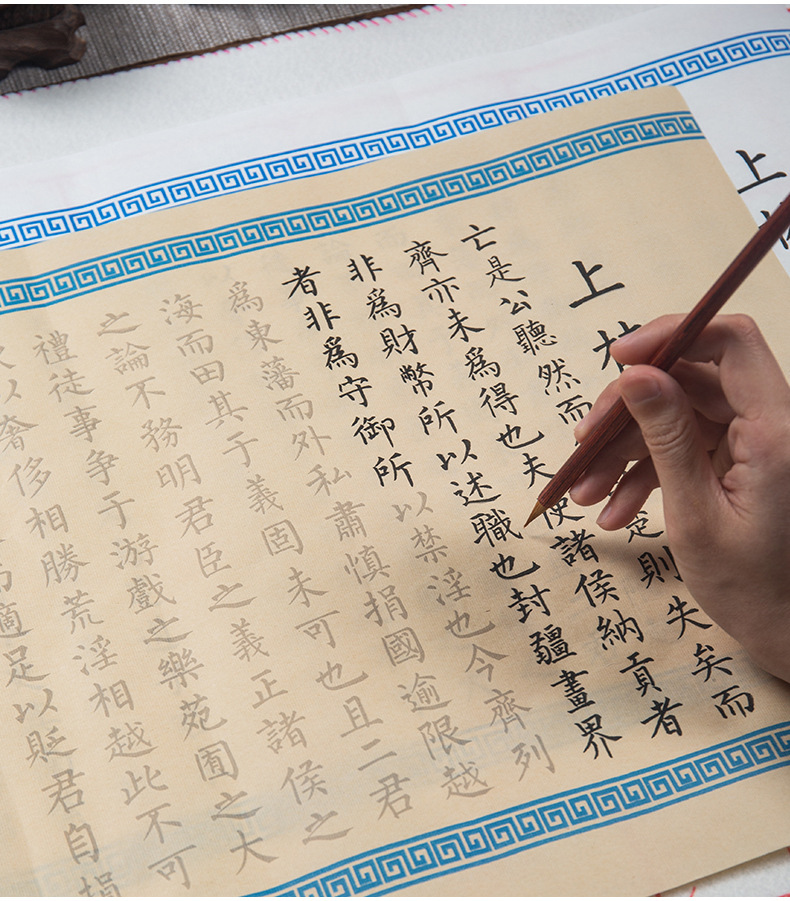 上
上林
亡是公聽然而則失矣而
齊亦未為得也夫使諸侯納貢者
非為財幣所以述職也封疆畫界
者非為守御所以禁淫也今齊列
為東藩而外私肅慎捐國逾限越
海而田其于義固未可也且二君
之論不務明君臣之義正諸侯之
禮徒事爭于游戲之樂苑囿之大
以奢侈相勝荒淫相越此不可
適足以貶君自損